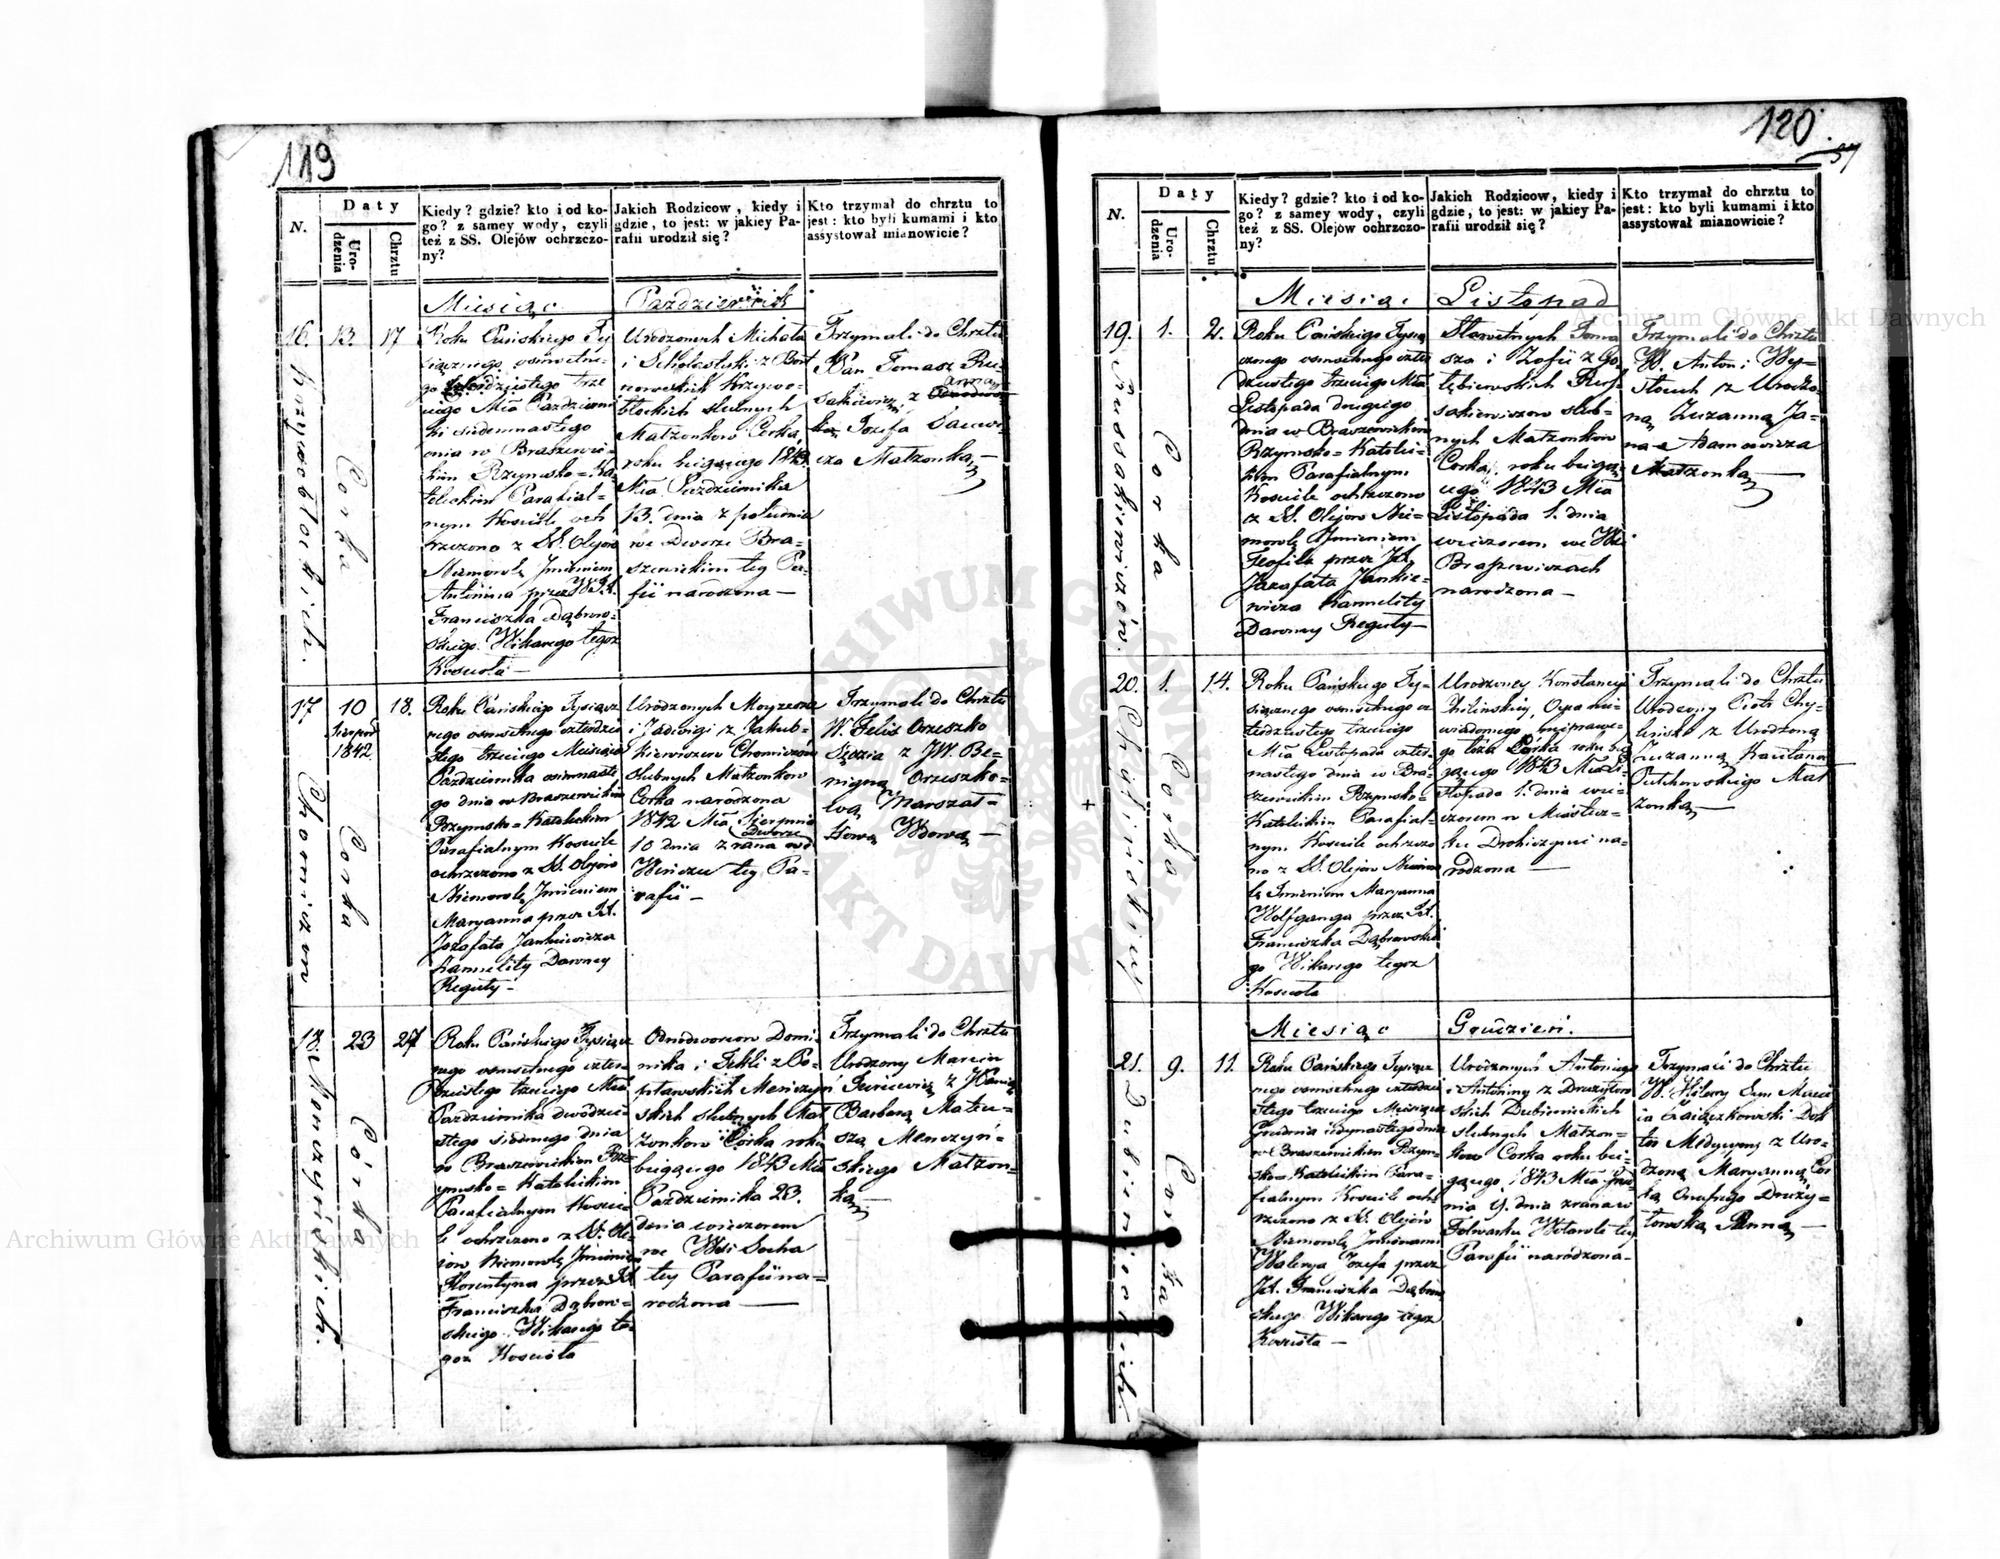 119
N.
Daty
Urodzenia
Chrztu
Kiedy? gdzie? kto i od ko-
go? z samey wody, czyli
też z SS. Olejów ochrzczo-
ny?
Jakich Rodzicow, kiedy i
gdzie, to jest: w jakiey Pa-
rafii urodził się?
Kto trzymał do chrztu to
jest: kto byli kumami i kto
assystował mianowicie?
Miesiąc Październik
16. 13. 17
Krzywobłockich.
Corka
Roku Pańskiego Ty
siącznego osmsetne-
go czterdziestego trze
ciego Mca Październi
ka siedemnastego
dnia w Braszewic-
kim Rzymsko=Ka
tolickim Parafial-
nym Kosciele och
rzczono z SS. Olejow
Niemowlę Jmieniem
Antonina przez
Franciszka Dąbrow-
skiego Wikarego tegoż
Koscioła —
Urodzonych Michała
i Scholastyki z
Krzywo-
błockich slubnych
Matżonkow Corka,
roku bieżącego 1843
Mca Października
13. dnia z południa
we Dworze Bra-
szewickim tey Pa-
fii narodzona —
Trzymali do Chrztu
Pan Tomasz Ru-
sakiewicz z
Panną
Jozefa
Matżonką —
17 10 Sierpnia 1842 18.
Chomiczow
Corka
Roku Pańskiego Tysiącz
nego osmsetnego czterdzie
stego trzeciego Miesiąca
Października osimnaste
go dnia w Braszewickim
Rzymsko=Katolickim
Parafialnym Kosciele
ochrzczono z SS. Olejow
Niemowlę Jmieniem
Maryanna przez
Jozafata Jankiewicza
Karmelity Dawney
Reguły —
Urodzonych Moyzesza
i Jadwigi z Jakub-
kiewiczow Chomiczów
slubnych Matżonkow
Corka narodzona
1842 Mca Sierpnia
10 dnia z rana we
Dworze
tey Pa-
rafii —
Trzymali do Chrztu
W. Felix Orzeszko
Sędzia z JW. Be-
nigną Orzeszko-
wą Marszał-
kową Wdową —
18. 23 27
Menczyńskich.
Córka
Roku Pańskiego Tysiącz
nego osmsetnego czter
dziestego trzeciego Mca
Października dwódzie-
stego siodmego dnia
w Braszewickim Rz-
ymsko=Katolickim
Parafialnym Koscie-
le ochrzczono z SS. Ole-
jow Niemowlę Jmieniem
Florentyna przez
Franciszka Dąbrow-
skiego Wikarego te
goż Koscioła
Odnodworcow Domi-
nika i Tekli z Po-
pławskich Menczyń
skich slubnych Mat
żonkow Córka roku
bieżącego 1843 Mca
Października 23.
dnia wieczorem
we Wsi Socha
tey Parafii na-
rodzona —
Trzymali do Chrztu
Urodzony Marcin
Juriewicz z
Barbarą Mateu-
sza Menczyń-
skiego Matżon-
ką —
120
57
N.
Daty
Urodzenia
Chrztu
Kiedy? gdzie? kto i od ko-
go? z samey wody, czyli
też z SS. Olejów ochrzczo-
ny?
Jakich Rodzicow, kiedy i
gdzie, to jest: w jakiey Pa-
rafii urodził się?
Kto trzymał do chrztu to
jest: kto byli kumami i kto
assystował mianowicie?
Miesiąc Listopad
19. 1. 2.
Russakiewiczów.
Corka
Roku Pańskiego Tysią
cznego osmsetnego czter
dziestego trzeciego Mca
Listopada drugiego
dnia w Braszewickim
Rzymsko=Katolic-
kim Parafialnym
Kosciele ochrzczono
z SS. Olejow Nie-
mowlę Jmieniem
Teofila przez
Jozafata Jankie-
wicza Karmelity
Dawney Reguły —
Sławetnych Toma
sza i Zofii z Go
łębiewskich Rus-
sakiewiczow slub-
nych Matżonkow
Corka, roku bieżą
cego 1843 Mca
Listopada 1. dnia
wieczorem we Wsi
Braszewiczach
narodzona —
Trzymali do Chrztu
W. Antoni Wys-
łouch z Urodzo-
ną Zuzanną Ja-
na Adamowicza
Matżonką —
20. 1. 14.
Corka
Roku Pańskiego Ty-
siącznego osmsetnego cz
terdziestego trzeciego
Mca Listopada czter-
nastego dnia w Bra-
szewickim Rzymsko-
Katolickim Parafial-
nym Kosciele ochrzczo
no z SS. Olejow Niemow
lę Jmieniem Maryanna
Wolfganga przez
Franciszka Dąbrowskie
go Wikarego tegoż
Koscioła
Urodzoney Konstancyi
Oyca nie-
wiadomego nieprawe-
go łoża Córka roku bie
żącego 1843 Mca Li-
stopada 1. dnia wie-
czorem w Miastecz-
ku Drohiczynie na-
rodzona —
Trzymali do Chrztu
Urodzony Piotr Chy-
liński z Urodzoną
Zuzanną Kajetana
Putkowskiego Mat
żonką —
Miesiąc Grudzień.
21. 9. 11.
Dubienieckich
Corka
Roku Pańskiego Tysiącz
nego osmsetnego czterdzie
stego trzeciego Miesiąca
Grudnia iedynastego dnia
w Braszewickim Rzym-
sko=Katolickim Para-
fialnym Kosciele och
rzczono z SS. Olejow
Niemowlę Jmionami
Walerya Jozefa przez
Franciszka Dąbrow
skiego Wikarego tegoż
Koscioła —
Urodzonych Antoniego
i Antoniny z Drużyłow
skich Dubienieckich
slubnych Matżon-
kow Corka roku bie-
żącego 1843 Mca Grud
nia 9. dnia z rana w
Folwarku tey
Parafii narodzona —
Trzymali do Chrztu
W. Hilary
Dok
tor Medycyny z Uro-
dzoną Maryanną Cor
ką Onufrego Druży-
łowską Panną —
Archiwum Główne Akt Dawnych
Archiwum Główne Akt Dawnych
ARCHIWUM GŁÓWNE
AKT DAWNYCH